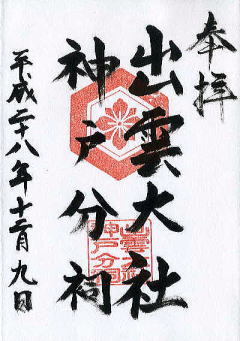 奉拝
出雲大社
神戸分祠
平成二十八年十二月九日
出雲大社
神戸分祠